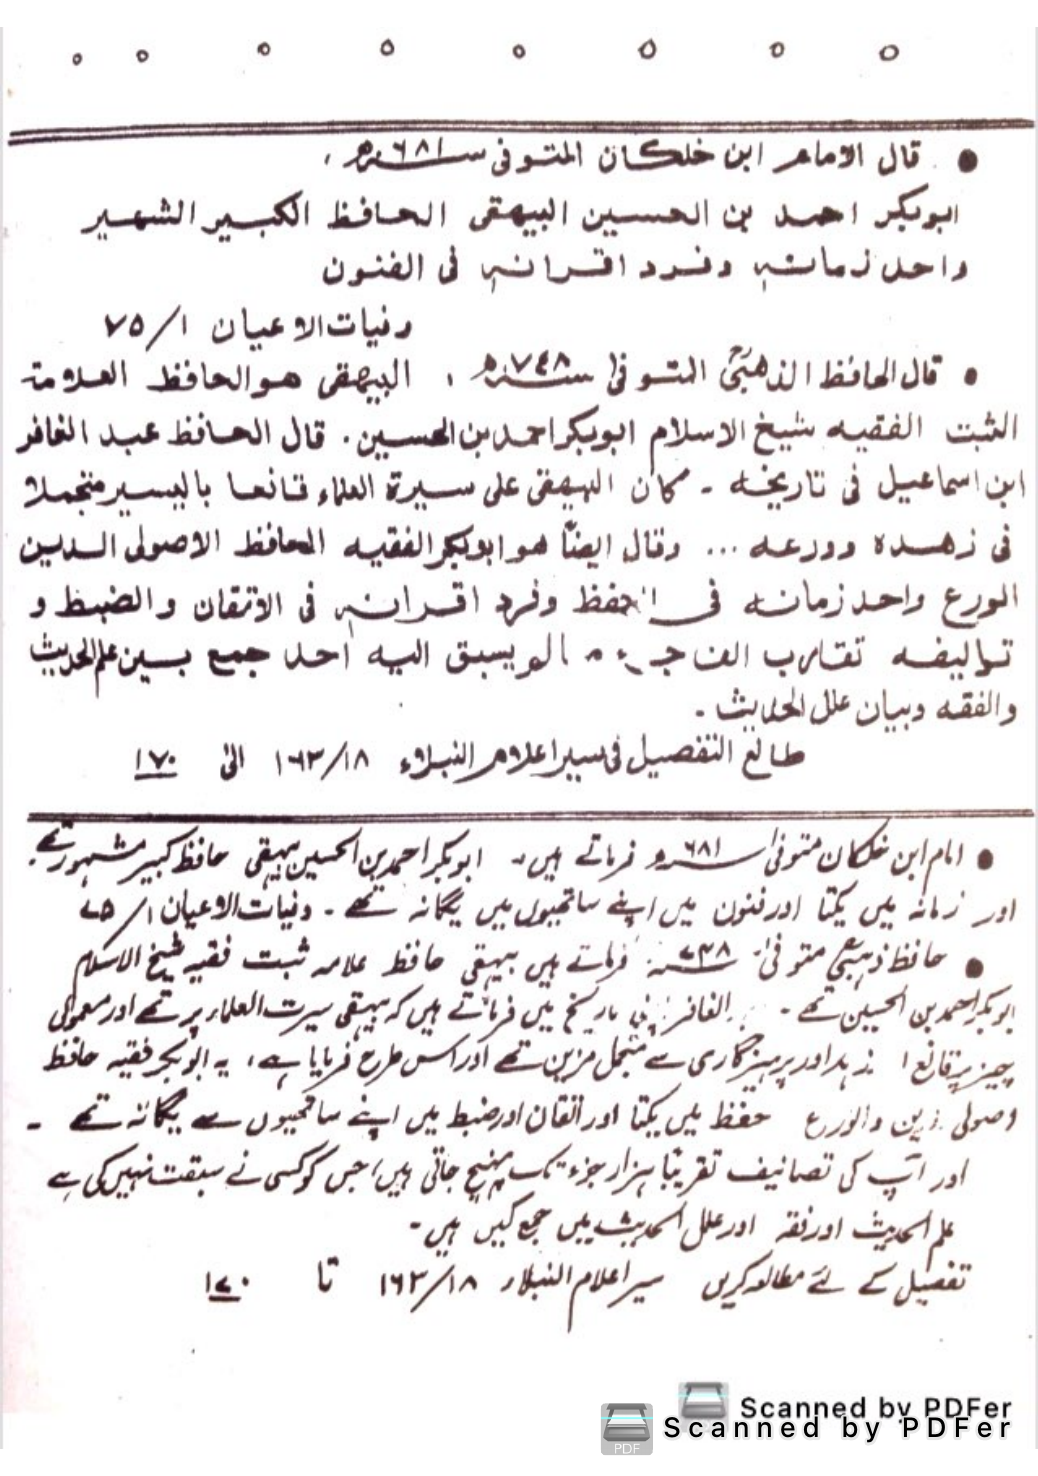 قال الامام ابن خلکان المتوفی سنہ ٦٨١ھ ،
ابوبکر احمد بن الحسین البیهقی الحافظ الکبیر الشهیر
واحد زمانہ وفرد اقرانہ فی الفنون
وفیات الاعیان ١/٧٥
قال الحافظ الذهبیؒ المتوفیٰ سنہ ٧٤٨ھ ، البیهقی هو الحافظ العلامة
الثبت الفقیه شیخ الاسلام ابوبکر احمد بن الحسین . قال الحافظ عبد الغافر
ابن اسماعیل فی تاریخہ ۔ کان البیهقی علی سیرة العلماء قانعا بالیسیر متجملا
فی زهده وورعہ ... وقال ایضاً هو ابوبکر الفقیه الحافظ الاصولی الدین
الورع واحد زمانہ فی الحفظ وفرد اقرانہ فی الاتقان والضبط و
توالیفہ تقارب الف جزء مما لم یسبق الیه احد جمع بین علم الحدیث
والفقه وبیان علل الحدیث ۔
طالع التفصیل فی سیر اعلام النبلاء ١٨/١٦٣ الی ١٧٠
امام ابن خلکان متوفیٰ سنہ ٦٨١ھ فرماتے ہیں۔ ابوبکر احمد بن الحسین بیہقی حافظ کبیر مشہور تھے۔
اور زمانہ میں یکتا اور فنون میں اپنے ساتھیوں میں یگانہ تھے ۔ وفیات الاعیان ۱/۷۵
حافظ ذہبیؒ متوفیٰ سنہ ۷۴۸ فرماتے ہیں بیہقی حافظ علامہ ثبت فقیہ شیخ الاسلام
ابوبکر احمد بن الحسین تھے ۔ الغافر اپنی تاریخ میں فرماتے ہیں کہ بیہقی سیرت العلماء پر تھے اور معمولی
چیز پر قانع زہد اور پرہیزگاری سے متجمل مزین تھے اور اس طرح فرمایا ہے، یہ ابوبکر فقیہ حافظ
اصولی دین والورع حفظ میں یکتا اور اتقان اور ضبط میں اپنے ساتھیوں سے یگانہ تھے ۔
اور آپ کی تصانیف تقریباً ہزار جزء تک پہنچ جاتی ہیں، جس کو کسی نے سبقت نہیں کی ہے
علم الحدیث اور فقہ اور علل الحدیث میں جمع کیں ہیں۔
تفصیل کے لئے مطالعہ کریں سیر اعلام النبلاء ۱۸/۱۶۳ تا ۱۷۰
Scanned by PDFer
Scanned by PDFer
PDF